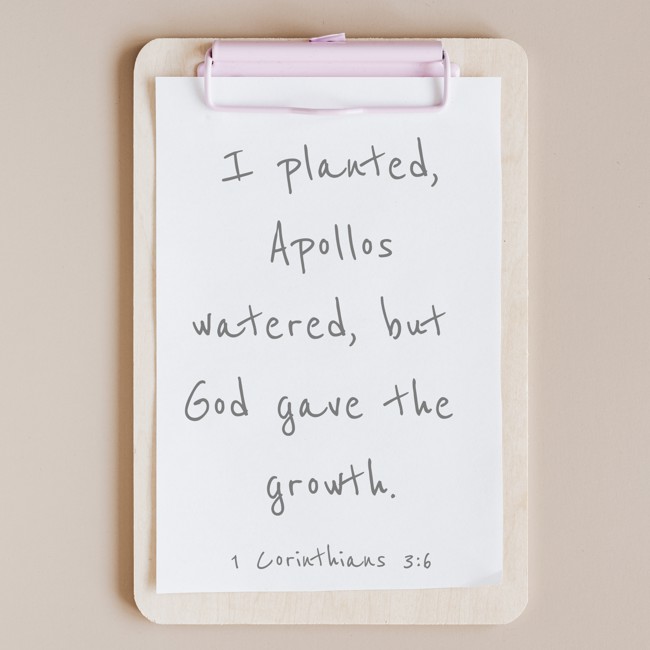 I planted,
Apollos
watered, but
God gave the
growth.
1 Corinthians 3:6